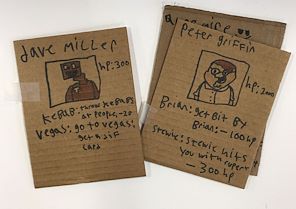 dave miller
hp:300
KEBAB: throw KEBABS
at people, -20
Vegas: go to vegas;
get
card
peter griffin
hp: 200
Brian: get Bit By
Brian: -100hp
Stewie: Stewie hits
you with rupert
- 300 hp